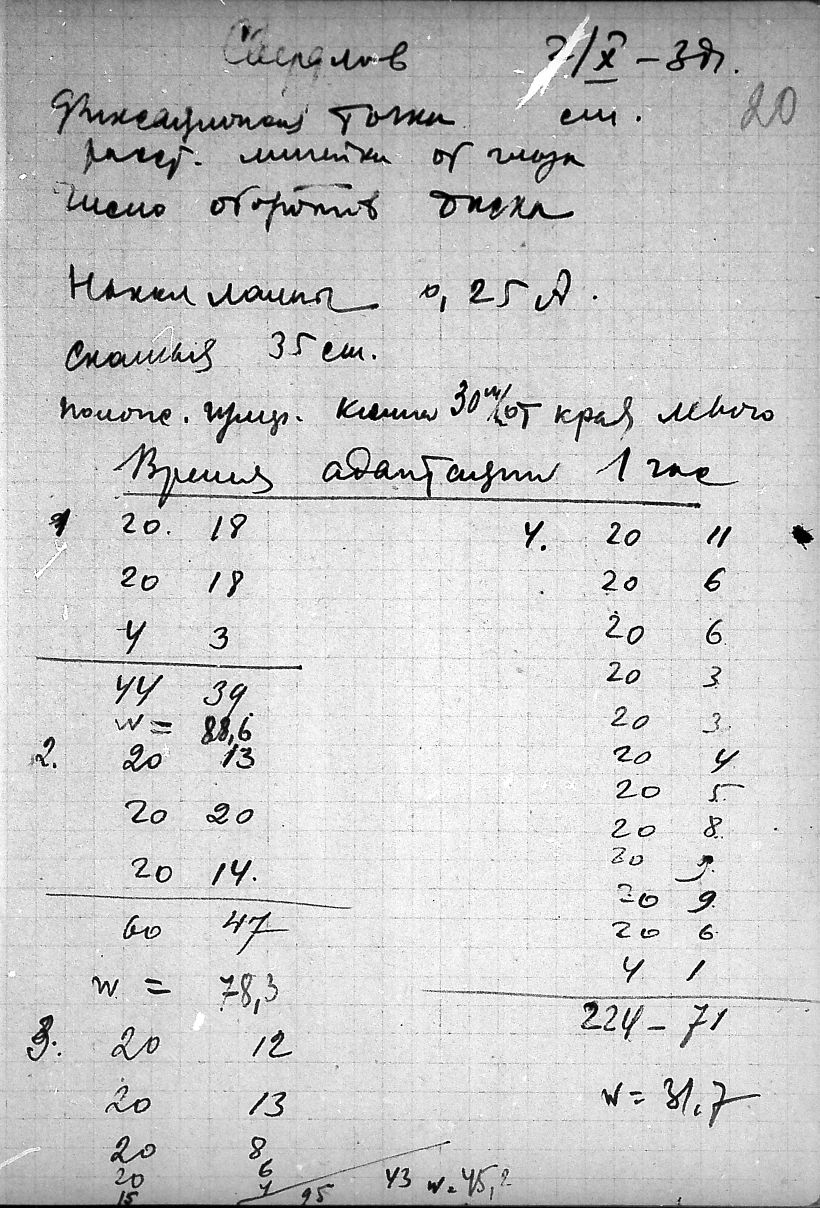 Свердлов 7/X – 38г.
20
Фиксационная точка см.
расст. линейки от глаза
Число оборотов диска
Накал лампы 0,25 А.
Скамья 35 см.
клина 30 от края левого
Время адаптации 1 час
1 20. 18
20 18
4 3
44 39
w = 88,6
2. 20 13
20 20
20 14.
60 47
w = 78,3
3. 20 12
20 13
20 8
20 6
15 4
95 43 w = 45,2
4. 20 11
20 6
20 6
20 3
20 3
20 4
20 5
20 8
20 9
20 9
20 6
4 1
224 – 71
w = 31,7